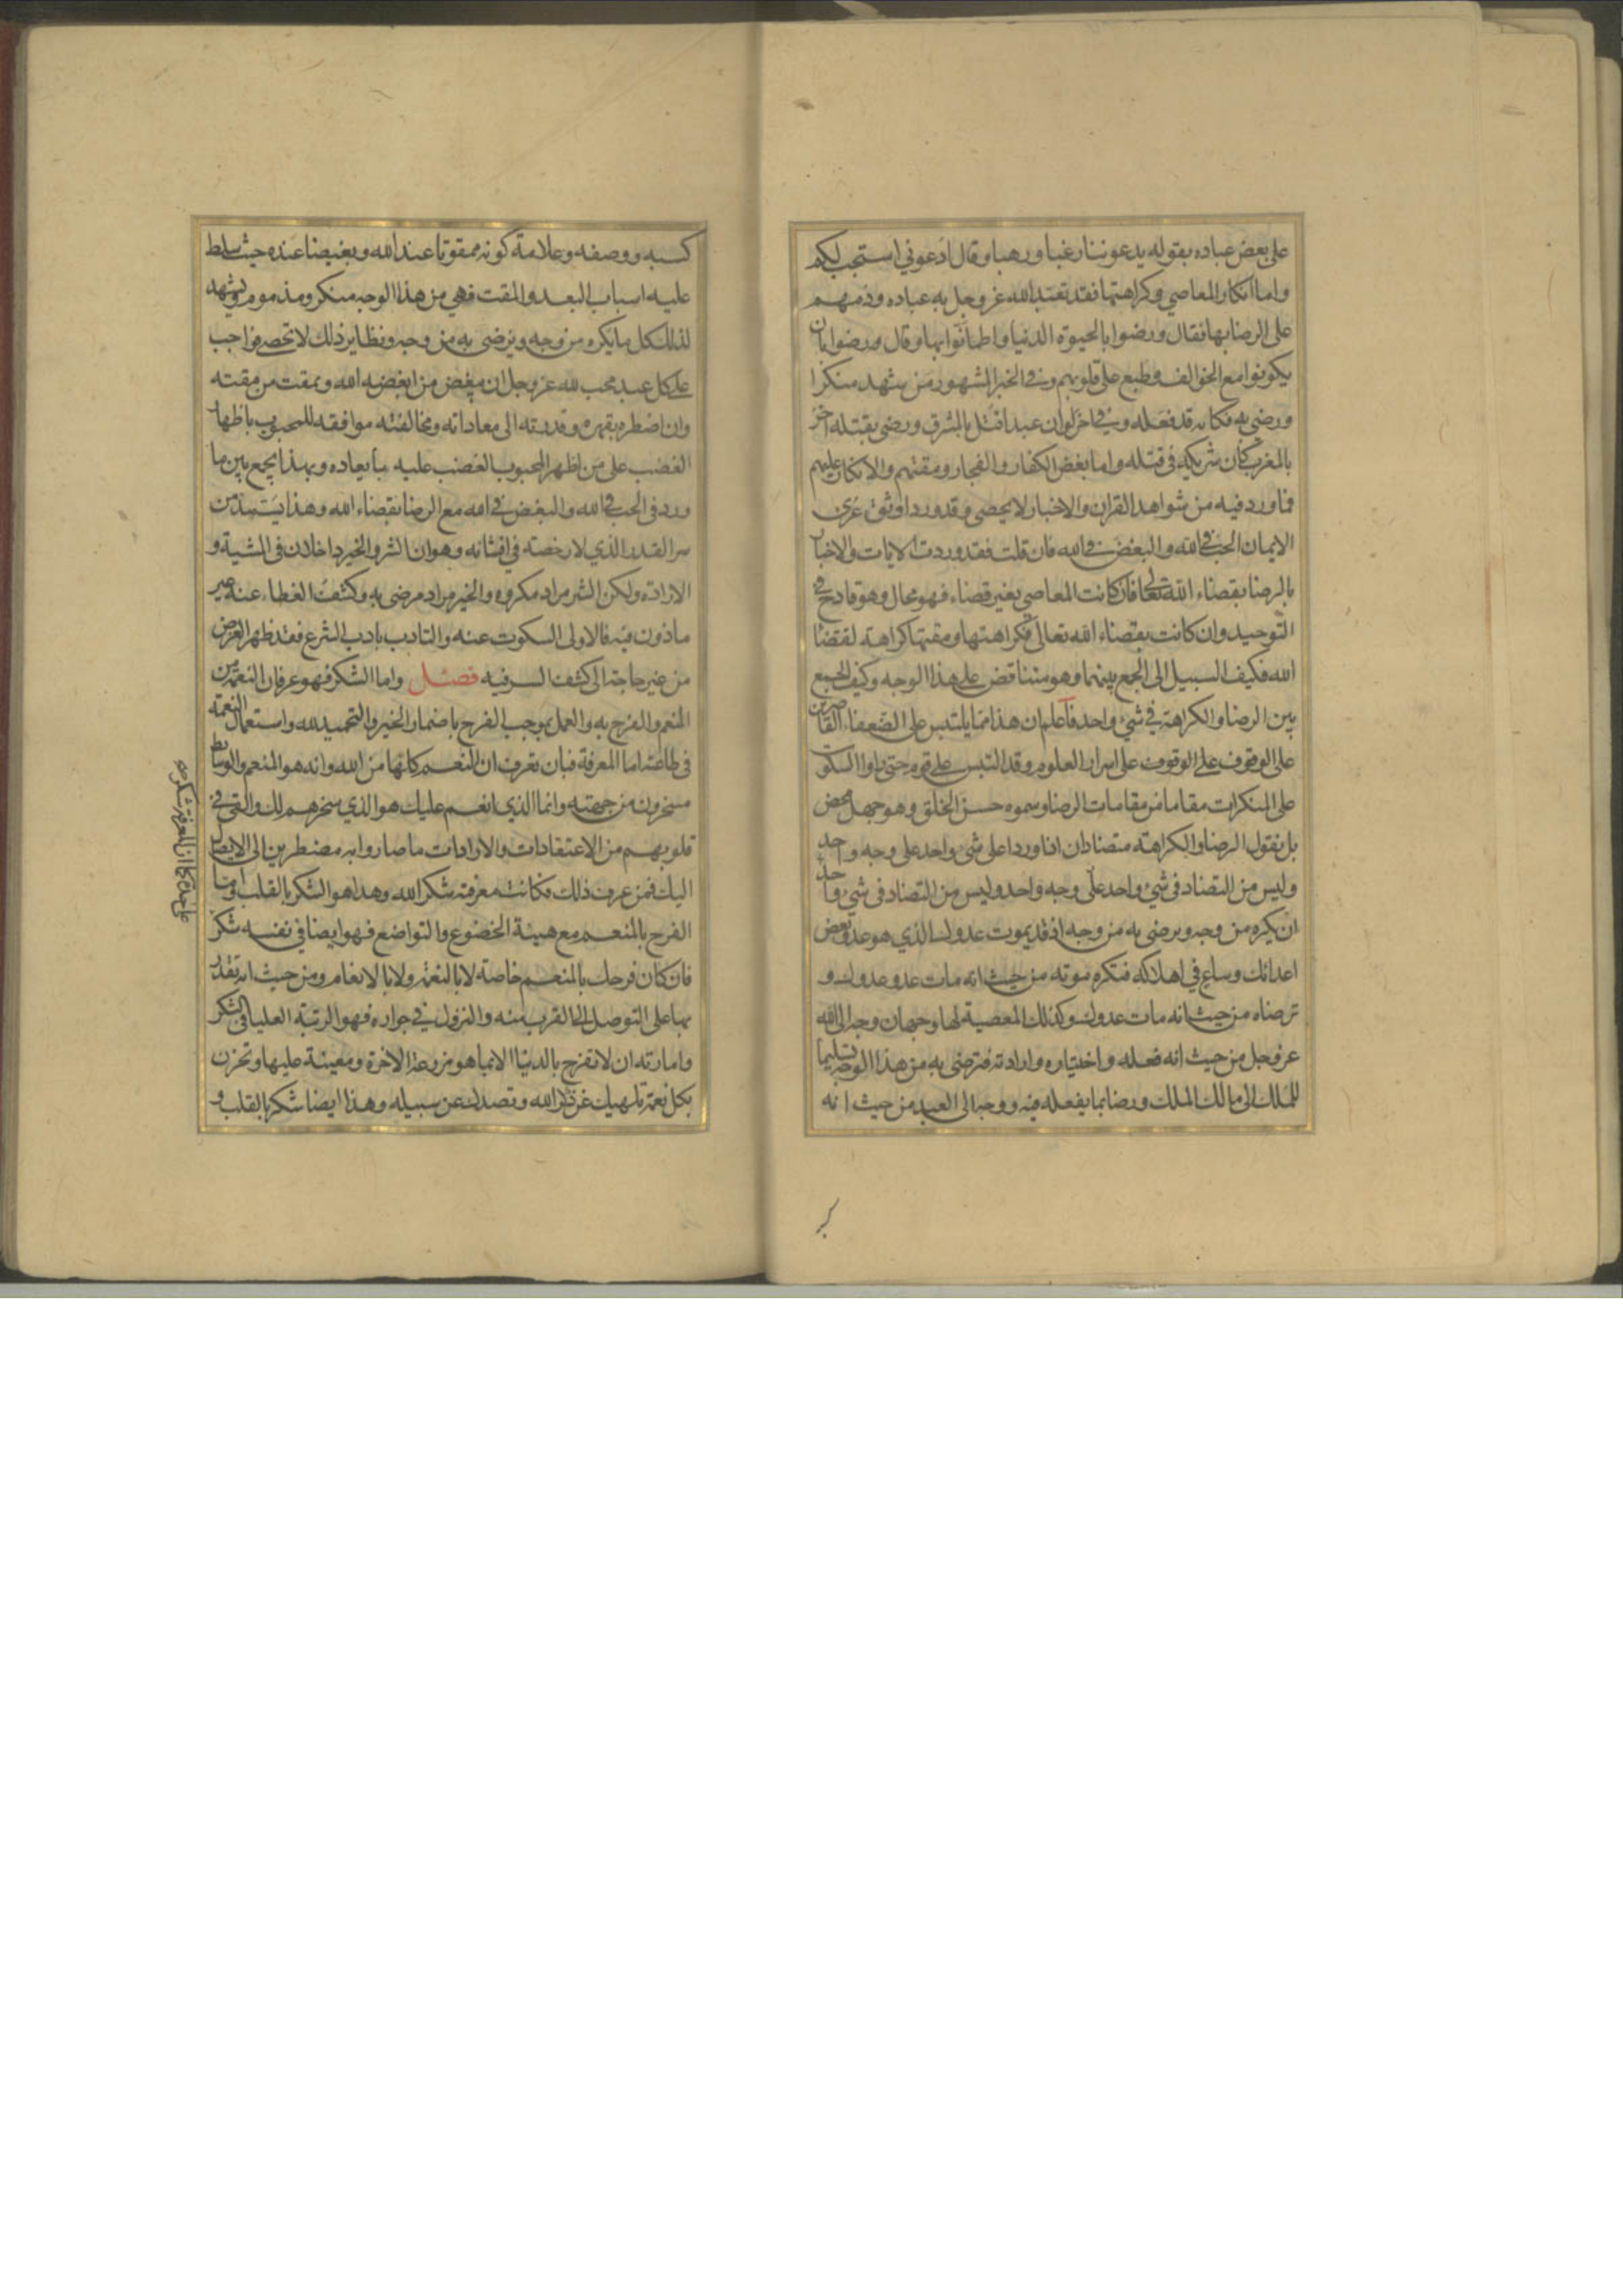 على بعض عباده بقوله يدعوننا رغبا ورهبا وقال ادعوني استجب لكم
واما انكار المعاصي وكراهتها فقد تعبد الله عز وجل به عباده وذمهم
على الرضا بها فقال ورضوا بالحيوة الدنيا واطمأنوا بها وقال ورضوا بان
يكونوا مع الخوالف وطبع على قلوبهم وفي الخبر المشهور من شهد منكرا
ورضي به فكانه قد فعله وفي اخر لو ان عبدا قتل بالمشرق ورضي بقتله اخر
بالمغرب كان شريكه في قتله واما بغض الكفار والفجار ومقتهم والانكار عليهم
فما ورد فيه من شواهد القران والاخبار لا يحصى وقد ورد اوثق عرى
الايمان الحب في الله والبغض في الله فان قلت فقد وردت الايات والاخبار
بالرضا بقضاء الله تعالى فان كانت المعاصي بغير قضاء فهو محال وهو قادح في
التوحيد وان كانت بقضاء الله تعالى فكراهتها ومقتها كراهة لقضاء
الله فكيف السبيل الى الجمع بينهما وهو متناقض على هذا الوجه وكيف الجمع
بين الرضا والكراهة في شيء واحد فاعلم ان هذا مما يلتبس على الضعفاء القاصرين
على الوقوف على الوقوف على اسرار العلوم وقد التبس على قوم حتى راوا السكوت
على المنكرات مقاما من مقامات الرضا وسموه حسن الخلق وهو جهل محض
بل نقول الرضا والكراهة متضادان اذا وردا على شيء واحد على وجه واحد
وليس من التضاد في شيء واحد على وجه واحد وليس من التضاد في شيء واحد
ان يكره من وجه ويرضى به من وجه اذ قد يموت عدوك الذي هو عدو بعض
اعدائك وساع في اهلاكه فتكره موته من حيث انه مات عدو عدوك و
ترضاه من حيث انه مات عدوك وكذلك المعصية لها وجهان وجه الى الله
عز وجل من حيث انه فعله واختياره وارادته فترضى به من هذا الوجه تسليما
للملك الى مالك الملك ورضا بما يفعله فيه ووجه الى العبد من حيث انه
كسبه ووصفه وعلامة كونه ممقوتا عند الله وبغيضا عنده حيث سلط
عليه اسباب البعد والمقت فهي من هذا الوجه منكر ومذموم ويشهد
لذلك كل ما يكره من وجه ويرضى به من وجه ونظاير ذلك لا تحصى فواجب
على كل عبد محب لله عز وجل ان يبغض من ابغضه الله ويمقت من مقته
وان اضطره بقهره وقدرته الى معاداته ومخالفته موافقة للمحبوب باظهار
الغضب على من اظهر المحبوب الغضب عليه بابعاده وبهذا يجمع بين ما
ورد في الحب في الله والبغض في الله مع الرضا بقضاء الله وهذا يستمد من
سر القدر الذي لا رخصة في افشائه وهو ان الشر والخير داخلان في المشية و
الارادة ولكن الشر مراد مكروه والخير مراد مرضي به وكشف الغطاء عنه غير
ماذون فيه فالاولى السكوت عنه والتادب بادب الشرع فقد ظهر الغرض
من غير حاجة الى كشف السر فيه فصل واما الشكر فهو عرفان النعمة من
المنعم والفرح به والعمل بموجب الفرح باضمار الخير والتحميد لله واستعمال النعمة
في طاعته اما المعرفة فبان تعرف ان النعم كلها من الله وانه هو المنعم والوسائط
مسخرون من جهته وانما الذي انعم عليك هو الذي سخرهم لك والقى في
قلوبهم من الاعتقادات والارادات ما صاروا به مضطرين الى الايصال
اليك فمن عرف ذلك فكانت معرفته شكر الله وهذا هو الشكر بالقلب واما
الفرح بالمنعم مع هيئة الخضوع والتواضع فهو ايضا في نفسه شكر
فان كان فرحك بالمنعم خاصة لا بالنعمة ولا بالانعام ومن حيث انه تقدر
بها على التوصل الى القرب منه والنزول في جواره فهو الرتبة العليا في الشكر
وامارته ان لا تفرح بالدنيا الا بما هو مزرعة الاخرة ومعينة عليها وتحزن
بكل نعمة تلهيك عن ذكر الله وتصدك عن سبيله وهذا ايضا شكر بالقلب و